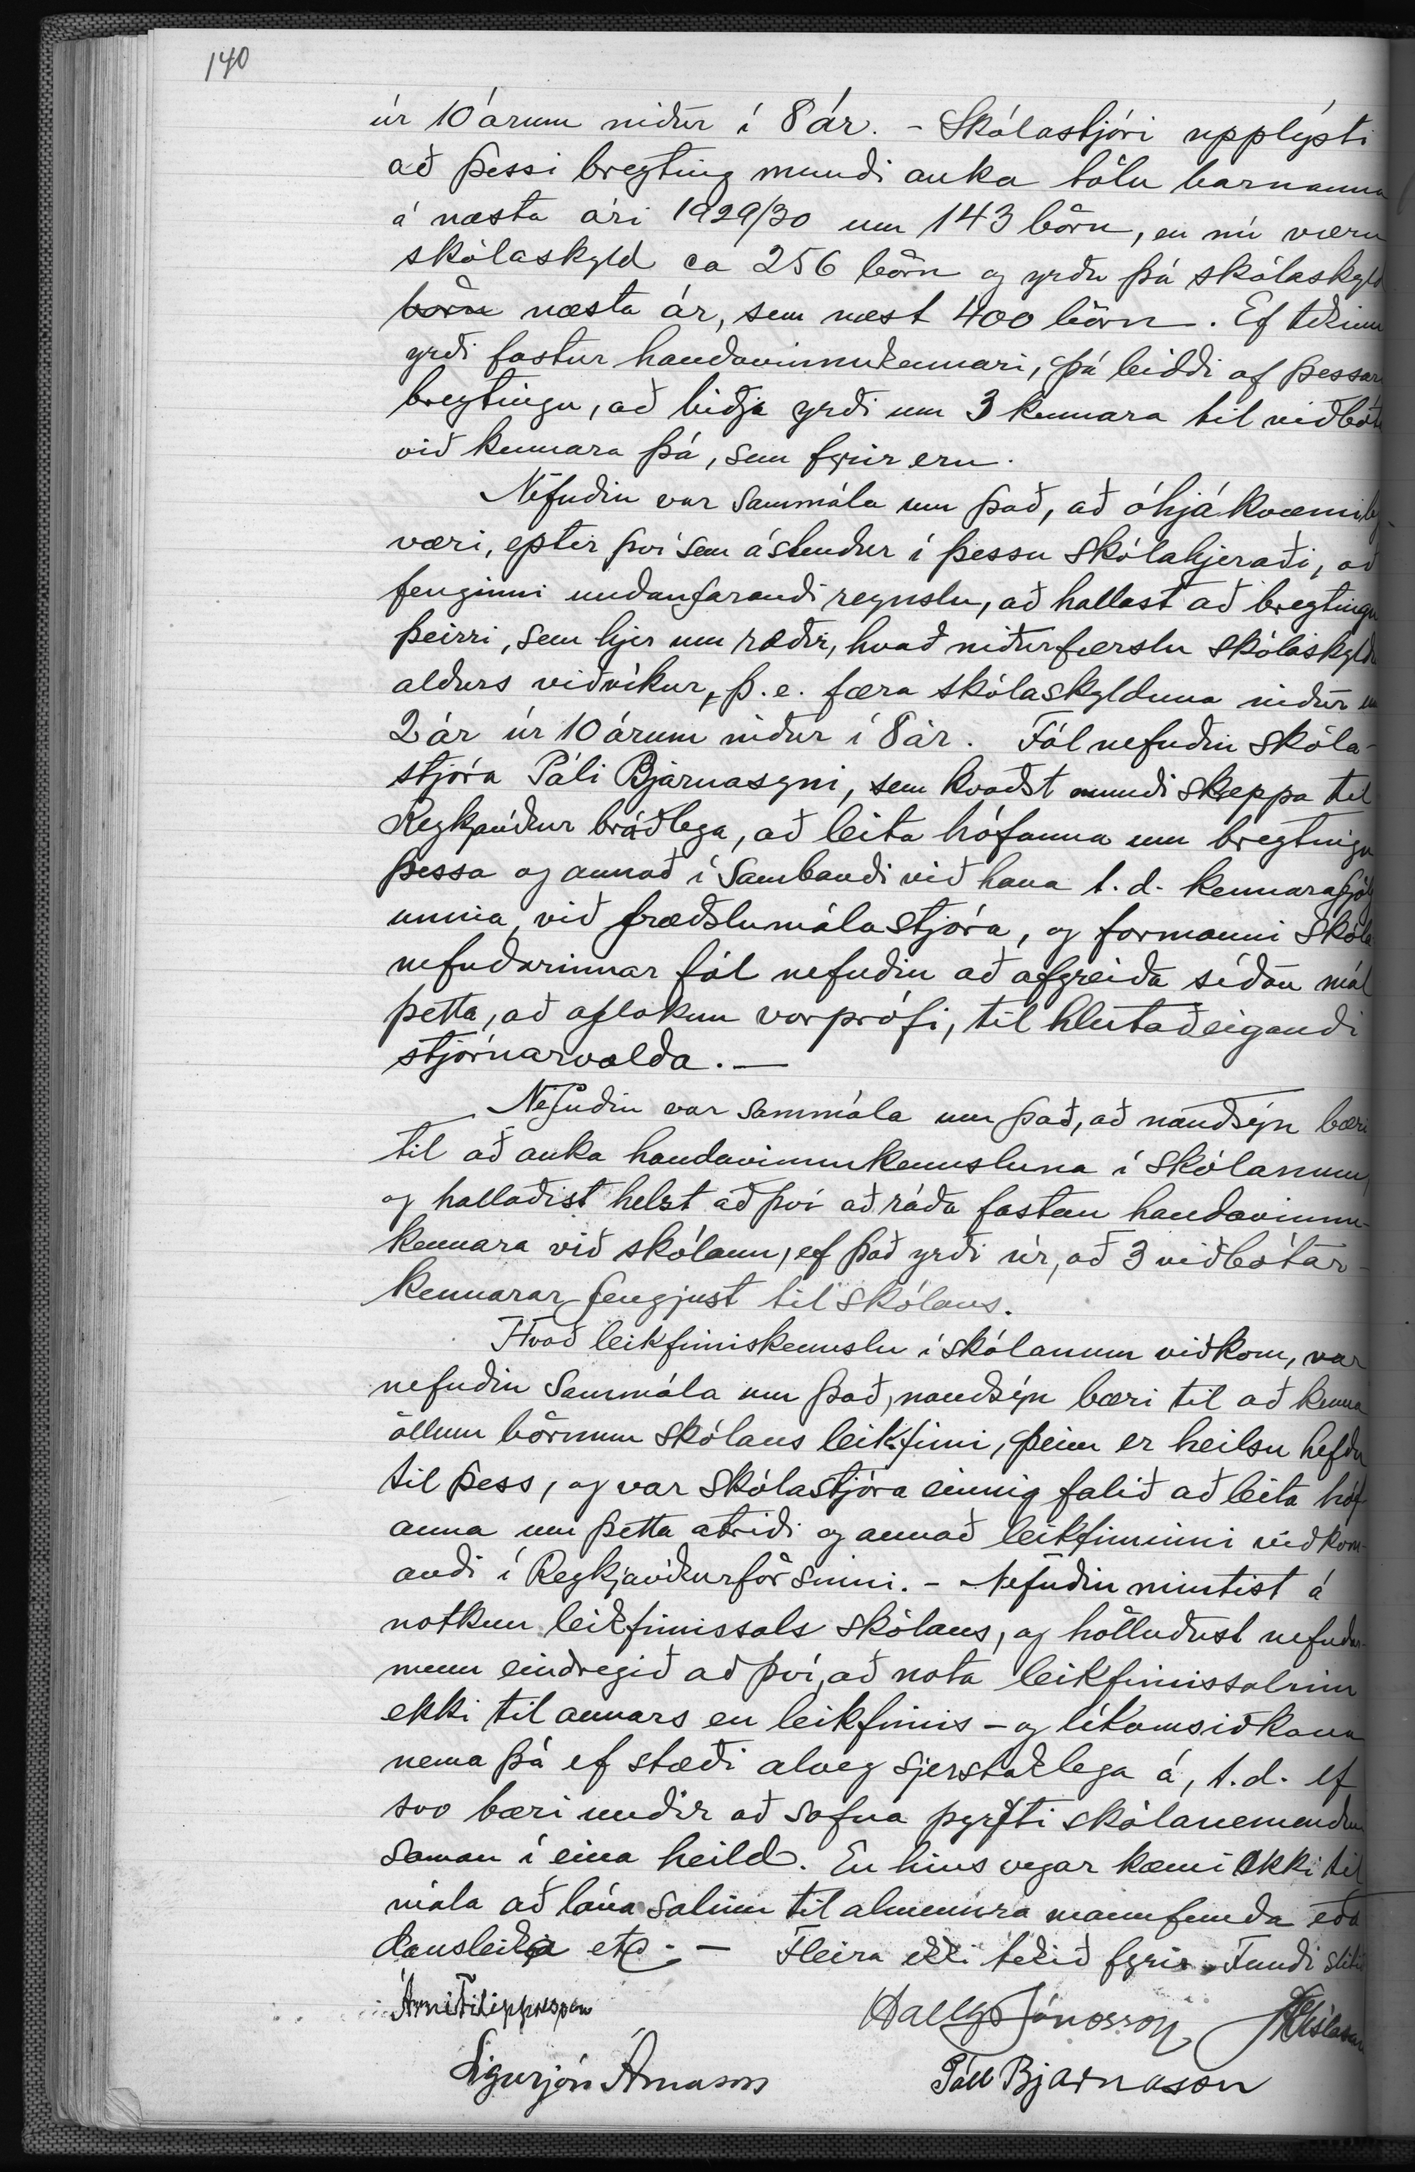 140
úr 10 árum niður í 8 ár. - Skólastjóri upplýsti
að þessi breyting mundi auka tölu barnanna
á næsta ári 1929/30 um 143 börn, en nú væru
skólaskyld ca 256 börn og yrðu þá skólaskyld
börn næsta ár, sem næst 400 börn. Ef tekinn
yrði fastur handavinnukennari, þá leiddi af þessari
breytingu, að biðja yrði um 3 kennara til viðbótar
við kennara þá, sem fyrir eru.
Nefndin var sammála um það, að óhjákvæmileg
væri, eptir því sem ástendur í þessu skólahjeraði, að
fenginni undanfarandi reynslu, að hallast að breytingu
þeirri, sem hjer um ræðir, hvað niðurfærslu skólaskyldu
aldurs viðvíkur, þ.e. færa skólaskylduna niður um
2 ár úr 10 árum niður í 8 ár. Fól nefndin skóla-
stjóra Páli Bjarnasyni, sem kvaðst mundi skreppa til
Reykjavíkur bráðlega, að leita hófanna um breytingu
þessa og annað í sambandi við hana t.d. kennarafjölg
unina, við fræðslumálastjóra, og formanni skóla
nefndarinnar fól nefndin að afgreiða síðan mál
þetta, að afloknu vorprófi, til hlutaðeigandi
stjórnarvalda. —
Nefndin var sammála um það, að nauðsýn bæri
til að auka handavinnukennsluna í skólanum,
og hallaðist helst að því að ráða fastan handavinnu-
kennara við skólann, ef það yrði úr, að 3 viðbótar-
kennarar fengjust til skólans.
Hvað leikfimiskennslu í skólanum viðkom, var
nefndin sammála um það, nauðsýn bæri til að kenna
öllum börnum skólans leikfimi, þeim er heilsu hefðu
til þess, og var skólastjóra einnig falið að leita hóf
anna um þetta atriði og annað leikfiminni viðkom-
andi í Reykjavíkurför sinni. - Nefndin mintist á
notkun leikfimissals skólans, og hölluðust nefndar-
menn eindregið að því, að nota leikfimissalinn
ekki til annars en leikfimis - og líkamsiðkana
nema þá ef stæði alveg sjerstaklega á, t.d. ef
svo bæri undir að safna þyrfti skólanemendum
saman í eina heild. En hins vegar kæmi ekki til
mála að lána salinn til almennra mannfunda eða
dansleika etc. - Fleira ekki tekið fyrir. Fundi slitið
Árni Filippusson
Hallgr. Jónasson
Sigurjón Árnason
Páll Bjarnason